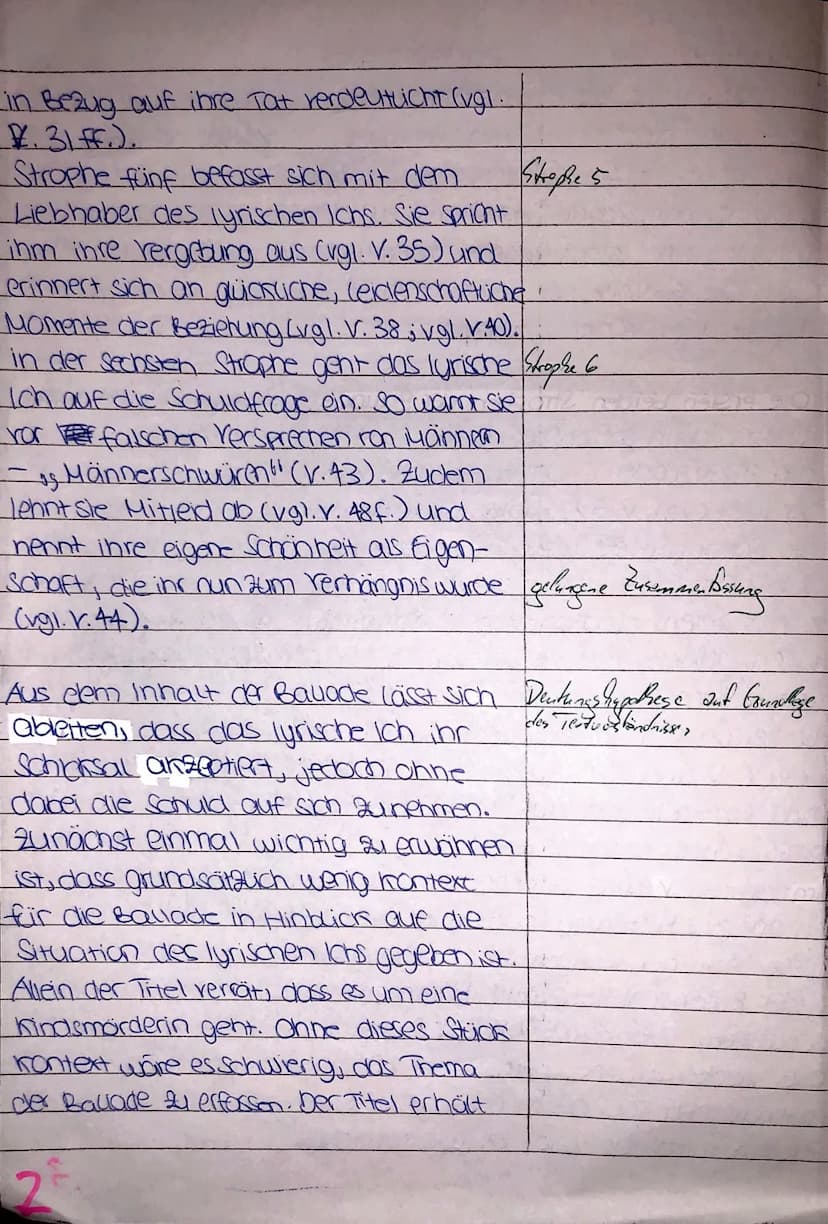 in Bezug auf ihre Tat verdeutlicht (vgl.
V. 31 ff.).
Strophe fünf befasst sich mit dem
Strophe 5
Liebhaber des lyrischen Ichs. Sie spricht
ihm ihre Vergebung aus (vgl. V. 35) und
erinnert sich an glückliche, leidenschaftliche
Momente der Beziehung (vgl. V. 38; vgl. V. 40).
in der sechsten Strophe geht das lyrische
Strophe 6
Ich auf die Schuldfrage ein. So warnt sie
vor falschen Versprechen von Männern
– „Männerschwüren“ (V. 43). Zudem
lehnt sie Mitleid ab (vgl. V. 48 f.) und
nennt ihre eigene Schönheit als Eigen-
schaft, die ihr nun zum Verhängnis wurde
gelungene Zusammenfassung
(vgl. V. 44).
Aus dem Inhalt der Ballade lässt sich
Deutungshypothese auf Grundlage
ableiten, dass das lyrische Ich ihr
des Textverständnisses
Schicksal akzeptiert, jedoch ohne
dabei die Schuld auf sich zu nehmen.
Zunächst einmal wichtig zu erwähnen
ist, dass grundsätzlich wenig Kontext
für die Ballade in Hinblick auf die
Situation des lyrischen Ichs gegeben ist.
Allein der Titel verrät, dass es um eine
Kindsmörderin geht. Ohne dieses Stück
Kontext wäre es schwierig, das Thema
der Ballade zu erfassen. Der Titel erhält
2